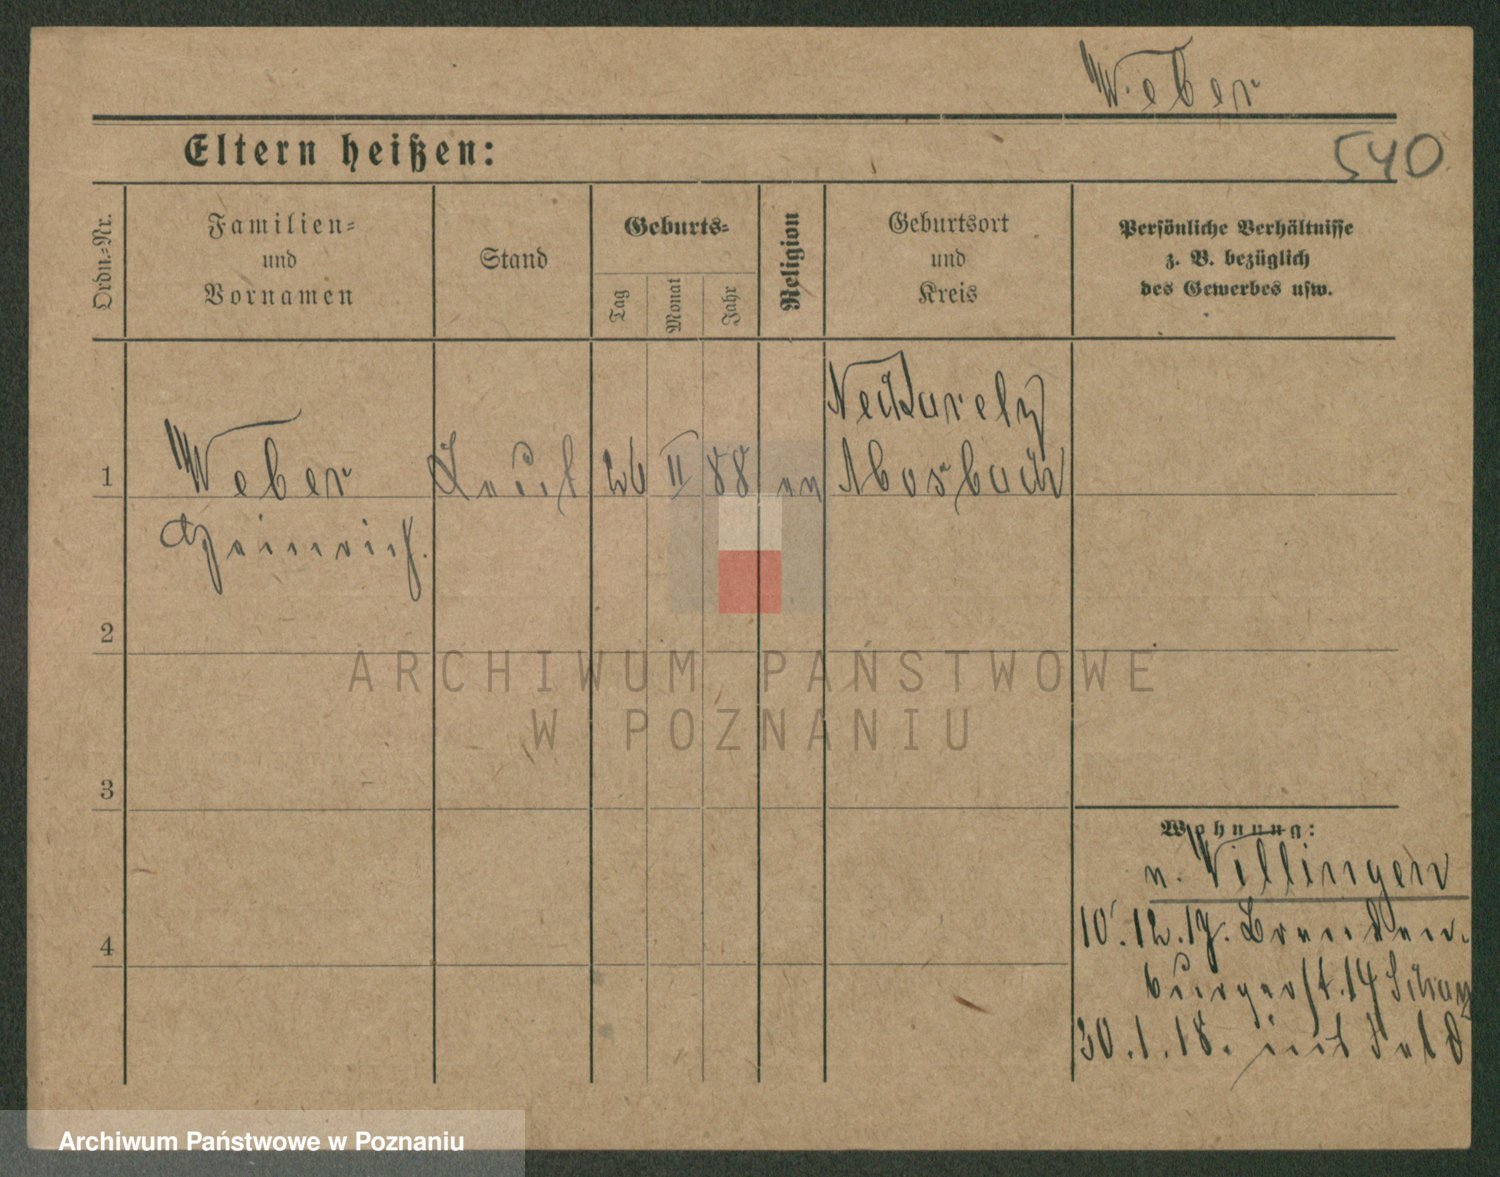 Weber
540
Eltern heißen:
Ordn.-Nr.
Familien-
und
Vornamen
Stand
Geburts-
Tag
Monat
Jahr
Religion
Geburtsort
und
Kreis
Persönliche Verhältnisse
z. B. bezüglich
des Gewerbes usw.
1
Weber
Heinrich.
26 II 88 ev
Neckarelz
Mosbach
2
3
4
Wohnung:
v. Villingen
10.12.17. Branden-
burgerst. 14
30.1.18. ins Feld
ARCHIWUM PAŃSTWOWE
W POZNANIU
Archiwum Państwowe w Poznaniu